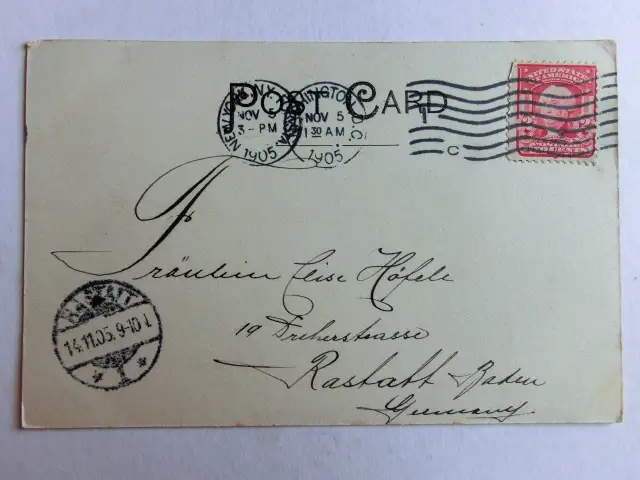 POST CARD
NEW YORK, N.Y.
NOV 5
3-PM
1905
WASHINGTON, D.C.
NOV 5
1 30 AM
1905
1
C
UNITED STATES
OF AMERICA
Fräulein Elise Höfele
19 Dreherstrasse
Rastatt Baden
Germany.
RASTATT
14.11.05. 9-10 V.
* 1 *